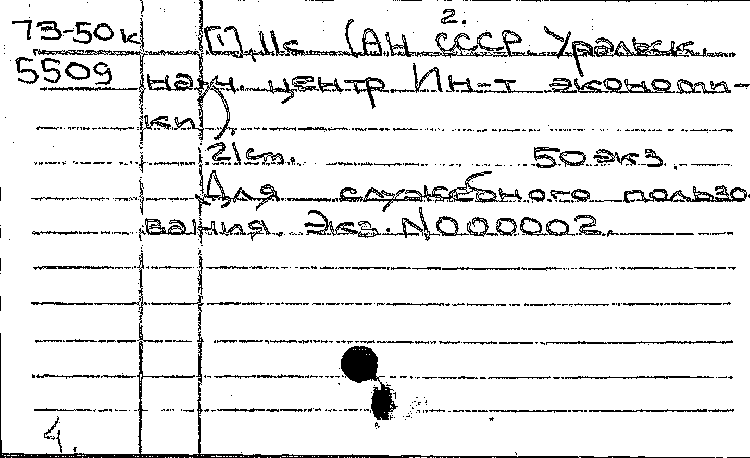 2.
73-50к [1], 11с (АН СССР. Уральск.
5509 науч. центр Ин-т экономи-
ки).
21 см. 50 экз.
Для служебного пользо-
вания. Экз. N 000002.
4.